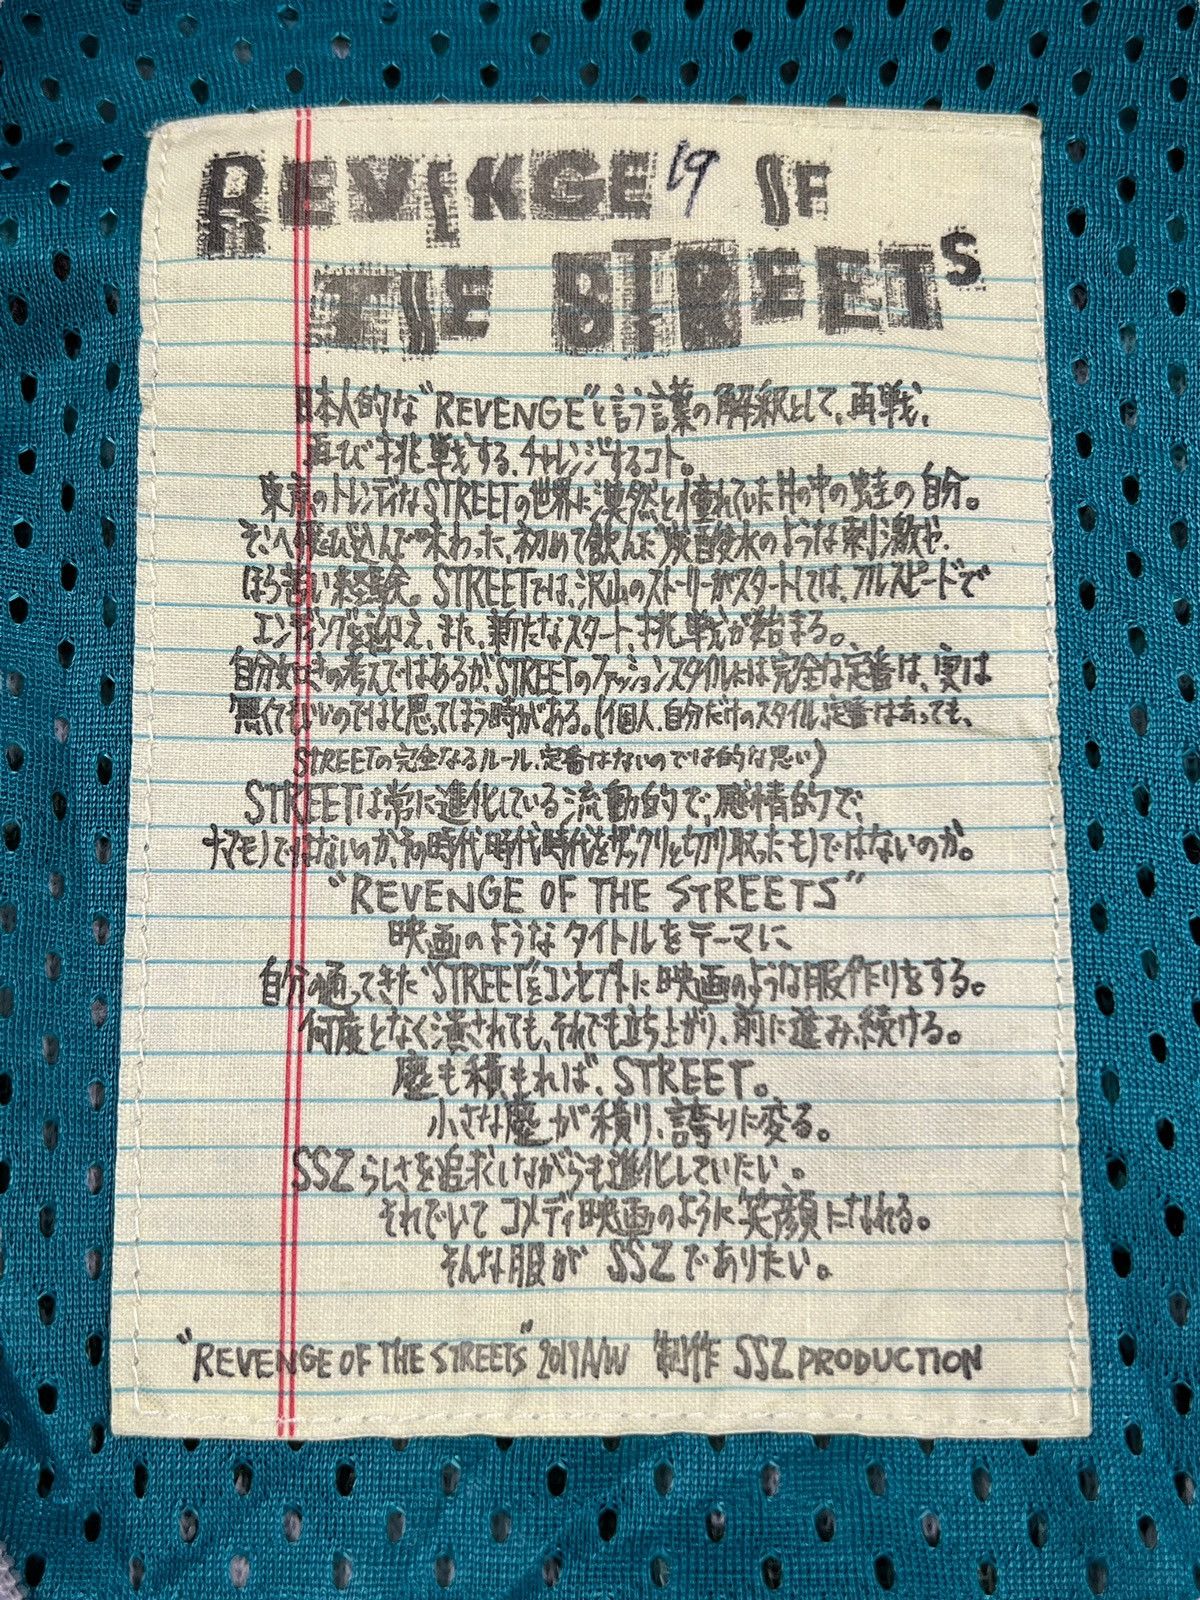 REVENGE '19 OF
THE STREETS
日本人的な"REVENGE"と言う言葉の解釈として、再戦、
再び挑戦する、チャレンジするコト。
東京のトレンディなSTREETの世界に漠然と憧れていた井の中の蛙の自分。
そこへ飛び込んで味わった、初めて飲んだ炭酸水のような刺激や、
ほろ苦い経験。STREETでは、沢山のストーリーがスタートしては、フルスピードで
エンディングを迎え、また、新たなスタート、挑戦が始まる。
自分好きの考えではあるが、STREETのファッションスタイルには完全な定番は、実は
無くてもないのではと思ってしまう時がある。(個人、自分だけのスタイル、定番はあっても、
STREETの完全なるルール、定番はないのでは的な思い)
STREETは常に進化している流動的で、感情的で、
ナマモノではないのか、その時代時代時代をザックリと切り取ったモノではないのか。
"REVENGE OF THE STREETS"
映画のようなタイトルをテーマに
自分の通ってきた"STREET"をコンセプトに映画のような服作りをする。
何度となく潰されても、それでも立ち上がり、前に進み、続ける。
塵も積もれば、STREET。
小さな塵が積り、誇りに変る。
SSZらしさを追求しながらも進化していたい。
それでいてコメディ映画のように笑顔になれる。
そんな服がSSZでありたい。
"REVENGE OF THE STREETS" 2019A/W 制作 SSZ PRODUCTION